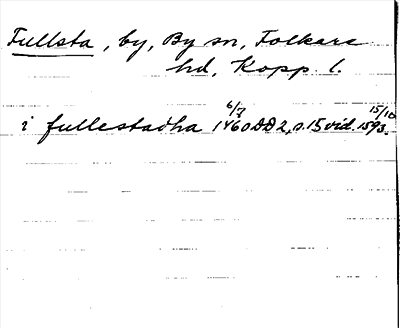 Fullsta, by, By sn, Folkare
hd, Kopp. l.
i fullestadha 1460 6/7 DD2, s. 15 vid. 1593 15/10.